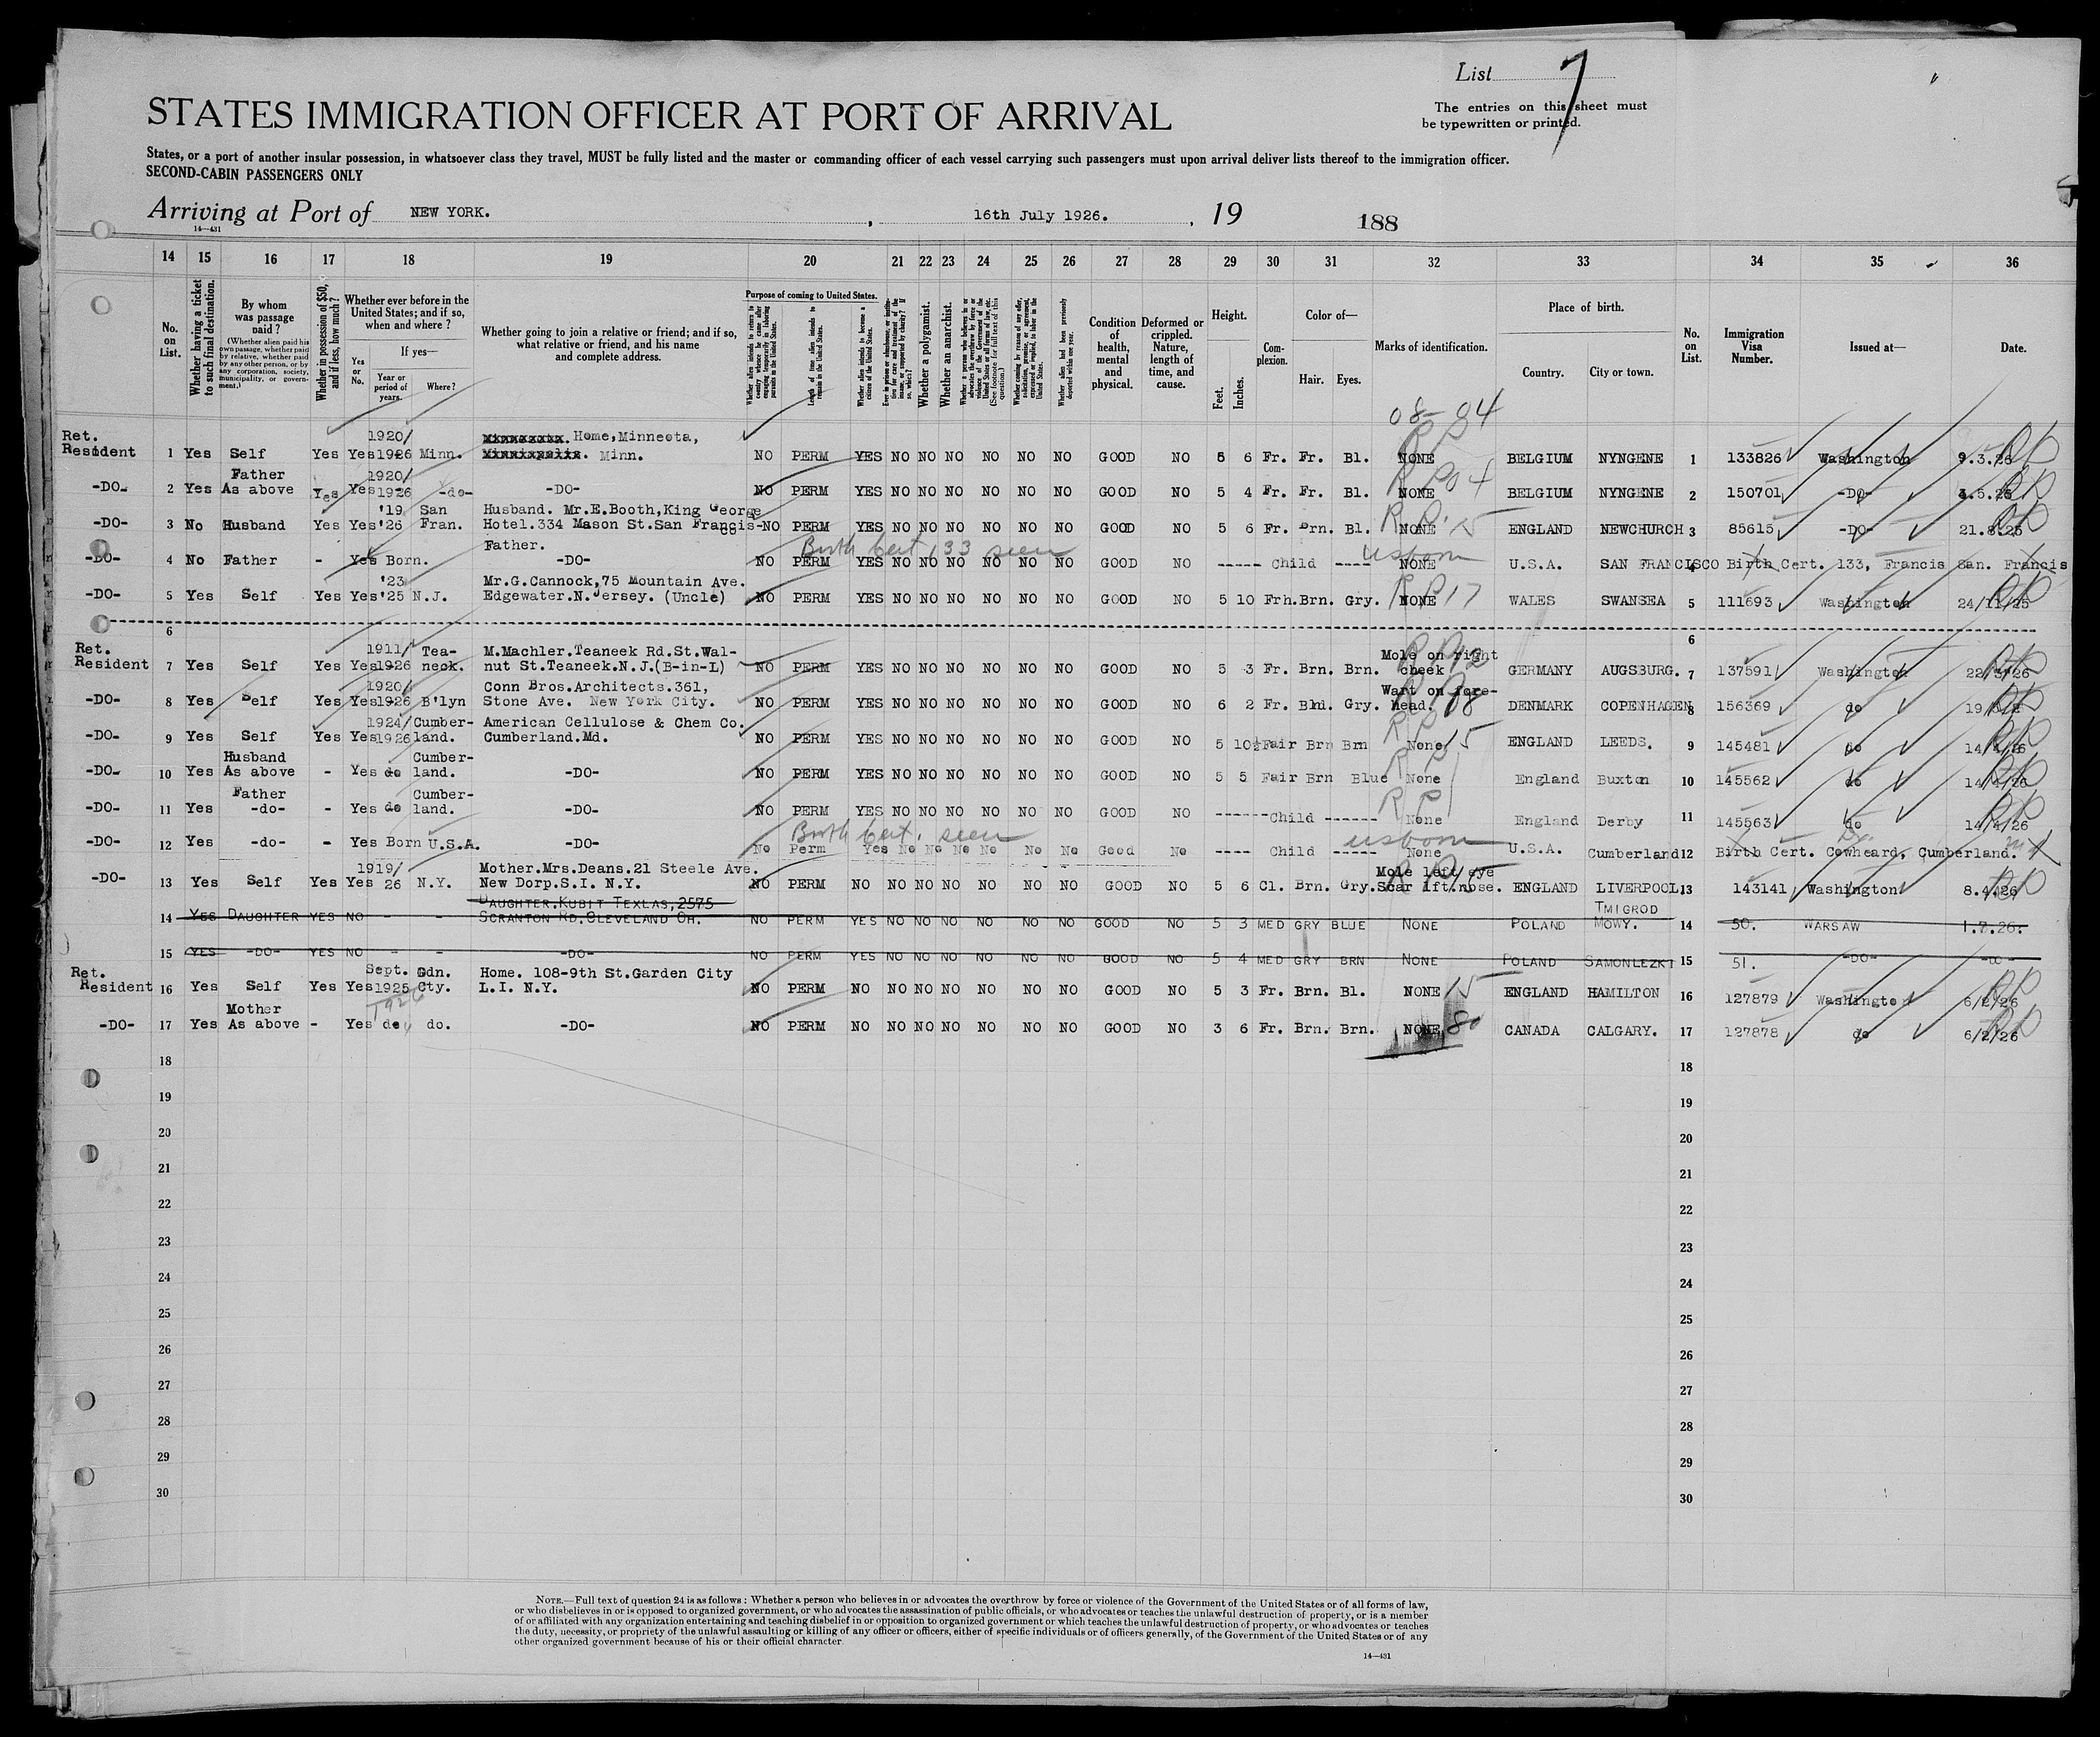 List 7
The entries on this sheet must
be typewritten or printed.
STATES IMMIGRATION OFFICER AT PORT OF ARRIVAL
States, or a port of another insular possession, in whatsoever class they travel, MUST be fully listed and the master or commanding officer of each vessel carrying such passengers must upon arrival deliver lists thereof to the immigration officer.
SECOND-CABIN PASSENGERS ONLY
Arriving at Port of NEW YORK. , 16th July 1926. , 19 188
14—431
14 15 16 17 18 19 20 21 22 23 24 25 26 27 28 29 30 31 32 33 34 35 36
No. on List.
Whether having a ticket to such final destination.
By whom was passage paid?
(Whether alien paid his own passage, whether paid by relative, whether paid by any other person, or by any corporation, society, municipality, or government.)
Whether in possession of $50, and if less, how much?
Whether ever before in the United States; and if so, when and where?
Yes or No.
If yes—
Year or period of years.
Where?
Whether going to join a relative or friend; and if so, what relative or friend, and his name and complete address.
Purpose of coming to United States.
Whether alien intends to return to country whence he came after engaging temporarily in laboring pursuits in the United States.
Length of time alien intends to remain in the United States.
Whether alien intends to become a citizen of the United States.
Whether a polygamist.
Whether an anarchist.
Whether coming by reason of any offer, solicitation, promise, or agreement, expressed or implied, to labor in the United States.
Whether alien had been previously deported within one year.
Condition of health, mental and physical.
Deformed or crippled. Nature, length of time, and cause.
Height.
Feet. Inches.
Complexion.
Color of—
Hair. Eyes.
Marks of identification.
Place of birth.
Country. City or town.
No. on List.
Immigration Visa Number.
Issued at—
Date.
08-04
Ret. Resident 1 Yes Self Yes Yes 1920/1926 Minn. Home, Minneota, Minn. NO PERM YES NO NO NO NO NO NO GOOD NO 5 6 Fr. Fr. Bl. NONE BELGIUM NYNGENE 1 133826 Washington 9.3.26
-DO- 2 Yes Father As above Yes Yes 1920/1926 -do- -DO- NO PERM YES NO NO NO NO NO NO GOOD NO 5 4 Fr. Fr. Bl. NONE BELGIUM NYNGENE 2 150701 -DO-
-DO- 3 No Husband Yes Yes '19 '26 San Fran. Husband. Mr.E.Booth,King George Hotel.334 Mason St.San Francisco NO PERM YES NO NO NO NO NO NO GOOD NO 5 6 Fr. Brn. Bl. NONE ENGLAND NEWCHURCH 3 85615 -DO- 21.8.25
-DO- 4 No Father - Yes Born. Father. -DO- Birth Cert 133 seen NO PERM YES NO NO NO NO NO NO GOOD NO ----- Child ---- usborn NONE U.S.A. SAN FRANCISCO 4 Birth Cert. 133, Francis San. Francis
-DO- 5 Yes Self Yes Yes '23 '25 N.J. Mr.G.Cannock,75 Mountain Ave. Edgewater.N.Jersey. (Uncle) NO PERM YES NO NO NO NO NO NO GOOD NO 5 10 Frh. Brn. Gry. NONE RP17 WALES SWANSEA 5 111693 Washington 24/11/25
6 6
Ret. Resident 7 Yes Self Yes Yes 1911/1926 Teaneck. M.Machler.Teaneek Rd.St.Walnut St.Teaneek.N.J.(B-in-L) NO PERM YES NO NO NO NO NO NO GOOD NO 5 3 Fr. Brn. Brn. Mole on right cheek GERMANY AUGSBURG. 7 137591 Washington 22/3/26
-DO- 8 Yes Self Yes Yes 1920/1926 B'lyn Conn Bros.Architects.361, Stone Ave. New York City. NO PERM YES NO NO NO NO NO NO GOOD NO 6 2 Fr. Bld. Gry. Wart on forehead. DENMARK COPENHAGEN 8 156369 do
-DO- 9 Yes Self Yes Yes 1924/1926 Cumberland. American Cellulose & Chem Co. Cumberland.Md. NO PERM YES NO NO NO NO NO NO GOOD NO 5 10½ Fair Brn Brn None 15 ENGLAND LEEDS. 9 145481 do 14/4/26
-DO- 10 Yes Husband As above - Yes do Cumberland. -DO- NO PERM YES NO NO NO NO NO NO GOOD NO 5 5 Fair Brn Blue None England Buxton 10 145562 do 14/4/26
-DO- 11 Yes Father -do- - Yes do Cumberland. -DO- NO PERM YES NO NO NO NO NO NO GOOD NO ------Child ------ None England Derby 11 145563 do 14/4/26
-DO- 12 Yes -do- - Yes Born U.S.A. -DO- Birth Cert. seen No Perm Yes No No No No No No Good No ---- Child ----- usborn None U.S.A. Cumberland 12 Birth Cert. Cowheard, Cumberland.
-DO- 13 Yes Self Yes Yes 1919/26 N.Y. Mother.Mrs.Deans.21 Steele Ave. New Dorp.S.I. N.Y. NO PERM NO NO NO NO NO NO NO GOOD NO 5 6 Cl. Brn. Gry. Mole left eye Scar lft.nose. ENGLAND LIVERPOOL 13 143141 Washington 8.4.26
14 YES DAUGHTER YES NO - - DAUGHTER.KUBIT TEXLAS,2575 SCRANTON RD.CLEVELAND OH. NO PERM YES NO NO NO NO NO NO GOOD NO 5 3 MED GRY BLUE NONE POLAND TMIGROD MOWY. 14 50. WARSAW 1.7.26.
15 YES -DO- YES NO - - -DO- NO PERM YES NO NO NO NO NO NO GOOD NO 5 4 MED GRY BRN NONE POLAND SAMONLEZKI 15 51. -DO- -DO-
Ret. Resident 16 Yes Self Yes Yes Sept. 1925 Gdn. Cty. Home. 108-9th St.Garden City L.I. N.Y. NO PERM NO NO NO NO NO NO NO GOOD NO 5 3 Fr. Brn. Bl. NONE 15 ENGLAND HAMILTON 16 127879 Washington 6/2/26
-DO- 17 Yes Mother As above - Yes 1926 do do. -DO- NO PERM NO NO NO NO NO NO NO GOOD NO 3 6 Fr. Brn. Brn. NONE 80 CANADA CALGARY. 17 127878 do 6/2/26
18 18
19 19
20 20
21 21
22 22
23 23
24 24
25 25
26 26
27 27
28 28
29 29
30 30
NOTE.—Full text of question 24 is as follows: Whether a person who believes in or advocates the overthrow by force or violence of the Government of the United States or of all forms of law,
or who disbelieves in or is opposed to organized government, or who advocates the assassination of public officials, or who advocates or teaches the unlawful destruction of property, or is a member
of or affiliated with any organization entertaining and teaching disbelief in or opposition to organized government or which teaches the unlawful destruction of property, or who advocates or teaches
the duty, necessity, or propriety of the unlawful assaulting or killing of any officer or officers, either of specific individuals or of officers generally, of the Government of the United States or of any
other organized government because of his or their official character.
14—431